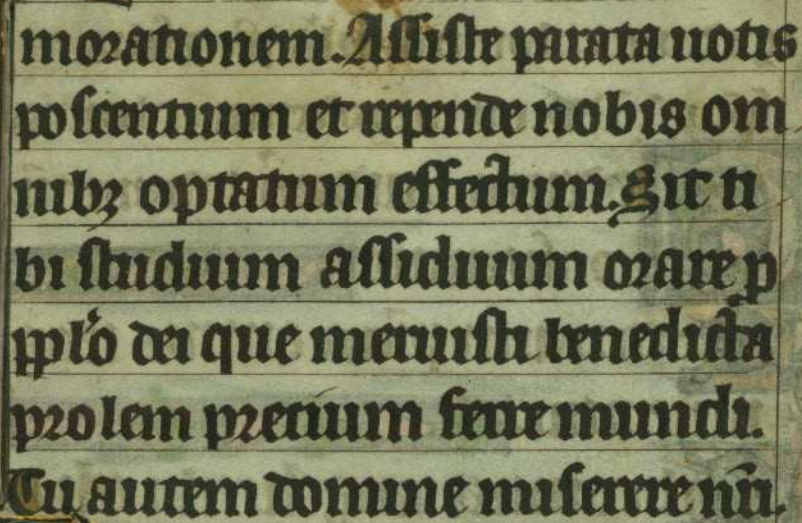 moꝛationem. Aſſiſte parata uotis
poſcentium et repende nobis om
nibꝫ optatum effectum. Sit ti
bi ſtudium aſſiduum oꝛare ꝓ
pplo̓ dei que meruiſti benedicta
pꝛolem pꝛecium ferre mundi.
Tu autem domine miſerere nr̄i.